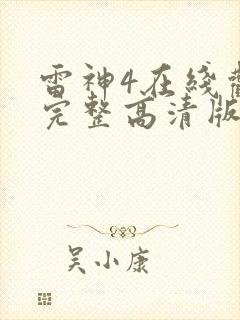 雷神4在线
完整高清版
吴小康